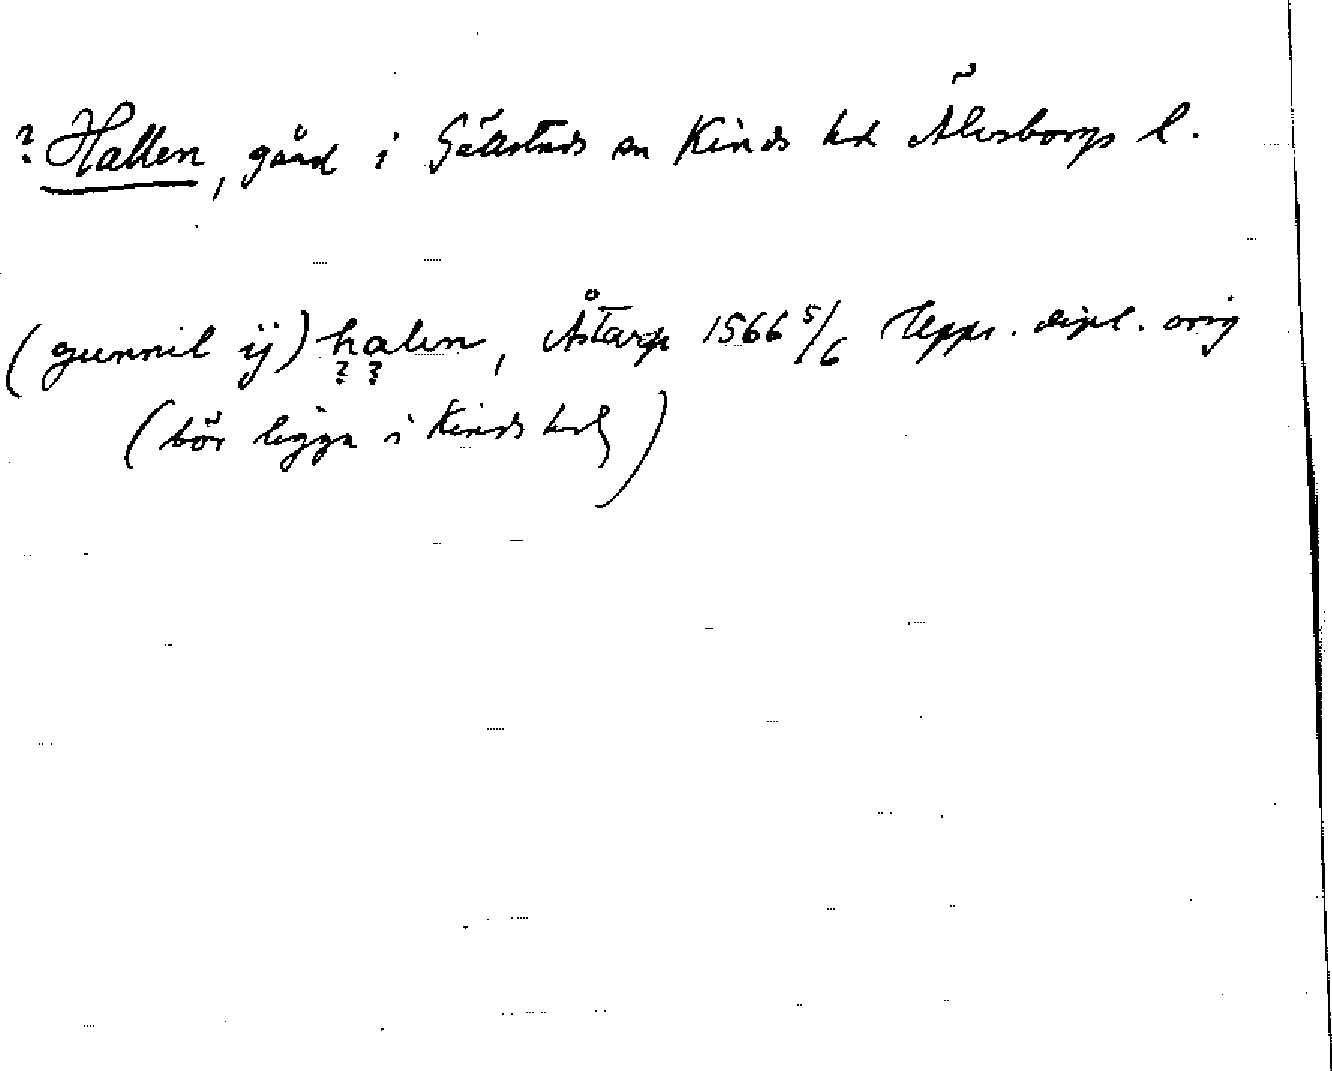 ? Hallen, gård i Gällstads sn Kinds hd Älvsborgs l.
(gunnil ij) halen, Åstarp 1566 5/6 Upps. dipl. orig
? ?
(bör ligga i Kinds hd)